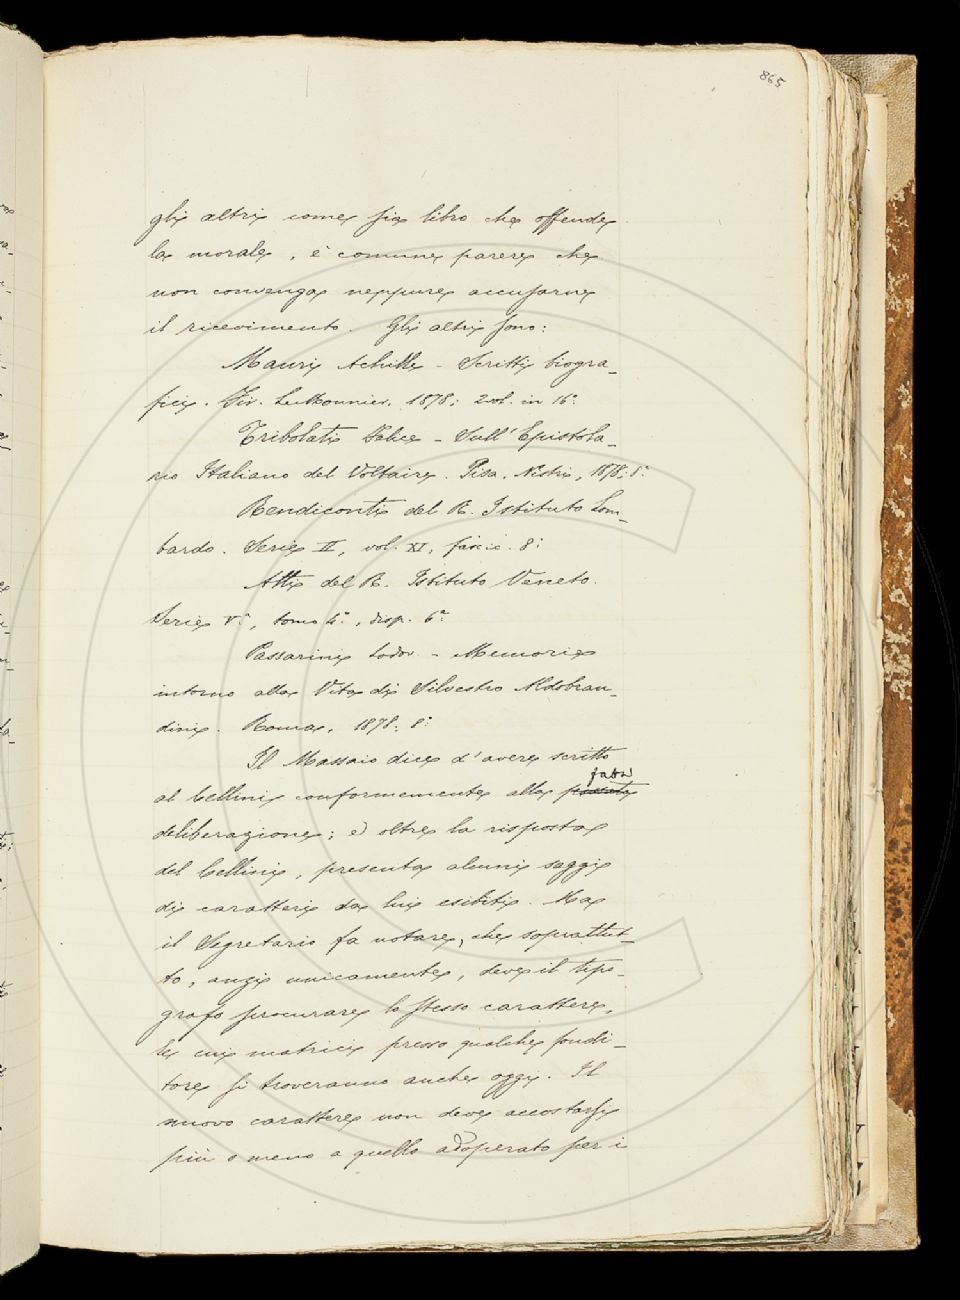 865
gli altri come sia libro che offende
la morale, è comune parere che
non convenga neppure accusarne
il ricevimento. Gli altri sono:
Mauri Achille - Scritti biogra_
fici. Fir. Le Monnier, 1878; 2 vol. in 16°
Tribolati Felice - Sull' Epistola_
rio Italiano del Voltaire. Pisa, Nistri, 1878; 8°
Rendiconti del R. Istituto Lom_
bardo. Serie II, vol. XI, fascic. 8°
Atti del R. Istituto Veneto.
Serie V.a, tomo 4°, disp. 6a
Passerini Lodov. - Memorie
intorno alla Vita di Silvestro Aldobran_
dini. Roma, 1878; 8°
Il Massaio dice d'avere scritto
fatta
al Cellini conformemente alla
deliberazione; ed oltre la risposta
del Cellini, presenta alcuni saggi
di caratteri da lui esibiti. Ma
il Segretario fa notare, che soprattut_
to, anzi unicamente, deve il tipo_
grafo procurare lo stesso carattere,
le cui matrici presso qualche fondi_
tore si troveranno anche oggi. Il
nuovo carattere non deve accostarsi
più o meno a quello adoperato per i